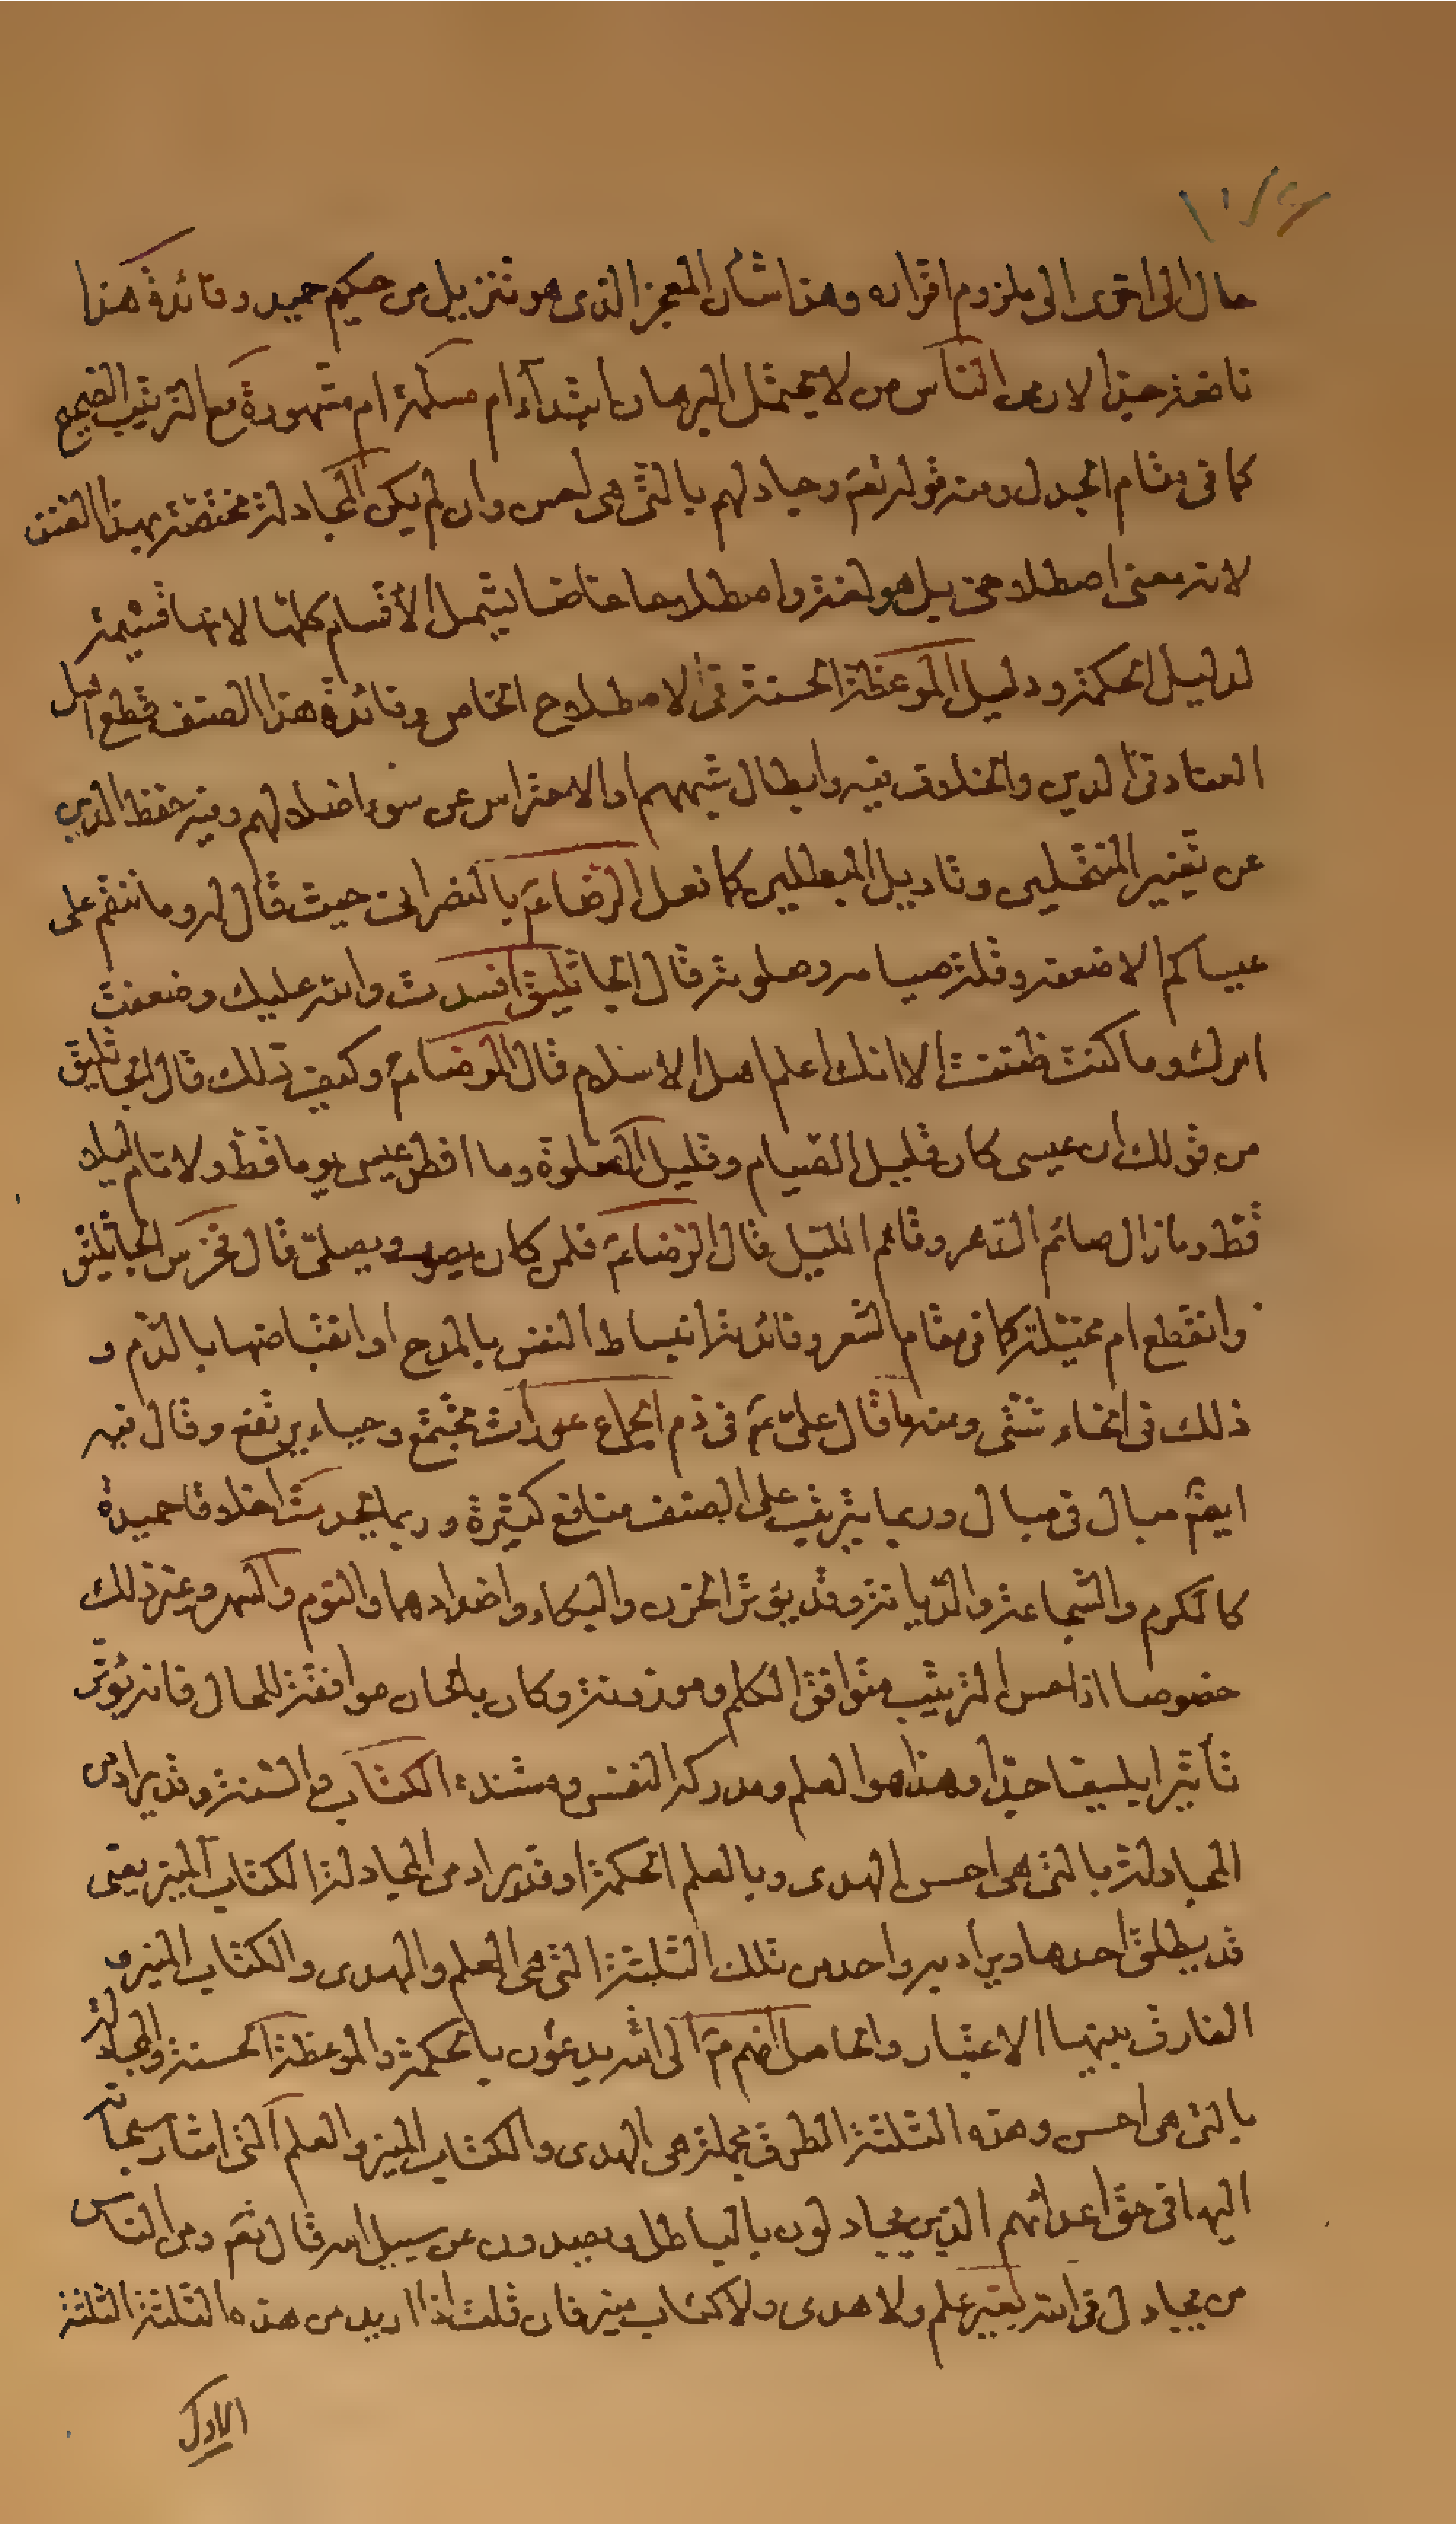 حال الى اخرى الى ملزوم اقراره وهذا شان المعجز الذى هو تنزيل من حكيم حميد وفائدة هذا
نافعة جدا لان من الناس من لا يحتمل البرهان ابتداء ام مسلمة ام مشهورة مع الترتيب الصحيح
كما فى مقام الجدل ومنه قوله تعم وجادلهم بالتى هى احسن وان لم يكن المجادلة مختصة بهذا الفن
لانه معنى اصطلاحى بل هو لغة واصطلاحا خاصا يشمل الأقسام كلها لانها قسيمة
لدليل الحكمة ودليل الموعظة الحسنة فى الاصطلاح الخاص وفائدة هذا الصنف قطع اهل
العناد فى الدين والخلاف فيه وابطال شبههم والاحتراس عن سوء اضلالهم وفيه حفظ الدين
عن تغيير المنتحلين وتاويل المبطلين كما فعل الرضا ع بالنصرانى حيث قال له وما ننقم على
عيساكم الا ضعفه وقلة صيامه وصلوته قال الجاثليق افسدت والله عليك وضعفت
امرك وما كنت ظننت الا انك اعلم اهل الاسلام قال الرضا ع وكيف ذلك قال الجاثليق
من قولك ان عيسى كان قليل الصيام وقليل الصلوة وما افطر عيسى يوما قط ولا نام ليلا
قط وما زال صائم الدهر وقائم الليل قال الرضا ع فلمن كان يصوم ويصلى قال فخرس الجاثليق
وانقطع ام مخيلة كما فى مقام الشعر وفائدته انبساط النفس بالمدح او انقباضها بالذم و
ذلك فى انحاء شتى ومنه ما قال على ع فى ذم الجماع عورات تجتمع وحياء يرتفع وقال فيه
ايضم مبال فى مبال وربما يترتب على الصنف منافع كثيرة وربما يحدث اخلاقا حميدة
كالكرم والشجاعة والديانة وقد يؤثر الحزن والبكاء واضدادهما والنوم والسهر وغير ذلك
خصوصا اذا احسن الترتيب متوافق الكلم وموزونة وكان بالحان موافقة للحال فانه يؤثر
تأثيرا بليغا جدا وهذا هو العلم ومدركه النفس ومستنده الكتاب والسنة وقد يراد من
المجادلة بالتى هى احسن الهدى وبالعلم الحكمة وقد يراد من المجادلة الكتاب المنير يعنى
قد يطلق احدها ويراد به واحد من تلك الثلثة التى هى العلم والهدى والكتاب المنير و
الفارق بينها الاعتبار والحاصل انهم ع الى الله يدعون بالحكمة والموعظة الحسنة والمجادلة
بالتى هى احسن وهذه الثلثة الطرق بجملة هى الهدى والكتاب المنير والعلم التى اشار سبحانه
اليها فى حق اعدائهم الذين يجادلون بالباطل ويصدون عن سبيل الله قال تعم ومن الناس
من يجادل فى الله بغير علم ولا هدى ولا كتاب منير فان قلت اذا اريد من هذه الثلثة الثلثة
الاول